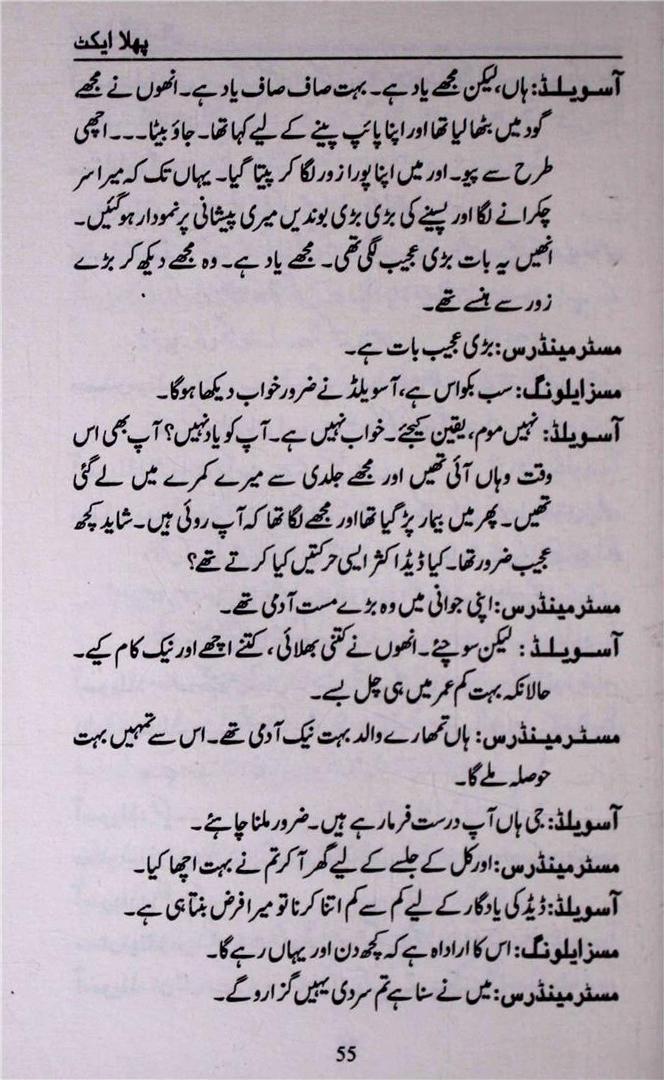 پہلا ایکٹ
آسویلڈ: ہاں، لیکن مجھے یاد ہے۔ بہت صاف صاف یاد ہے۔ انھوں نے مجھے
گود میں بٹھا لیا تھا اور اپنا پائپ پینے کے لیے کہا تھا۔ جاؤ بیٹا۔۔۔ اچھی
طرح سے پیو۔ اور میں اپنا پورا زور لگا کر پیتا گیا۔ یہاں تک کہ میرا سر
چکرانے لگا اور پسینے کی بڑی بڑی بوندیں میری پیشانی پر نمودار ہو گئیں۔
انھیں یہ بات بڑی عجیب لگی تھی۔ مجھے یاد ہے۔ وہ مجھے دیکھ کر بڑے
زور سے ہنسے تھے۔
مسٹر مینڈرس: بڑی عجیب بات ہے۔
مسز ایلونگ: سب بکواس ہے، آسویلڈ نے ضرور خواب دیکھا ہوگا۔
آسویلڈ: نہیں موم، یقین کیجئے۔ خواب نہیں ہے۔ آپ کو یاد نہیں؟ آپ بھی اس
وقت وہاں آئی تھیں اور مجھے جلدی سے میرے کمرے میں لے گئی
تھیں۔ پھر میں بیمار پڑ گیا تھا اور مجھے لگا تھا کہ آپ روئی ہیں۔ شاید کچھ
عجیب ضرور تھا۔ کیا ڈیڈ اکثر ایسی حرکتیں کیا کرتے تھے؟
مسٹر مینڈرس: اپنی جوانی میں وہ بڑے مست آدمی تھے۔
آسویلڈ: لیکن سوچئے۔ انھوں نے کتنی بھلائی، کتنے اچھے اور نیک کام کیے۔
حالانکہ بہت کم عمر میں ہی چل بسے۔
مسٹر مینڈرس: ہاں تمھارے والد بہت نیک آدمی تھے۔ اس سے تمہیں بہت
حوصلہ ملے گا۔
آسویلڈ: جی ہاں آپ درست فرما رہے ہیں۔ ضرور ملنا چاہئے۔
مسٹر مینڈرس: اور کل کے جلسے کے لیے گھر آ کر تم نے بہت اچھا کیا۔
آسویلڈ: ڈیڈ کی یادگار کے لیے کم سے کم اتنا کرنا تو میرا فرض بنتا ہی ہے۔
مسز ایلونگ: اس کا ارادہ ہے کہ کچھ دن اور یہاں رہے گا۔
مسٹر مینڈرس: میں نے سنا ہے تم سردی یہیں گزارو گے۔
55